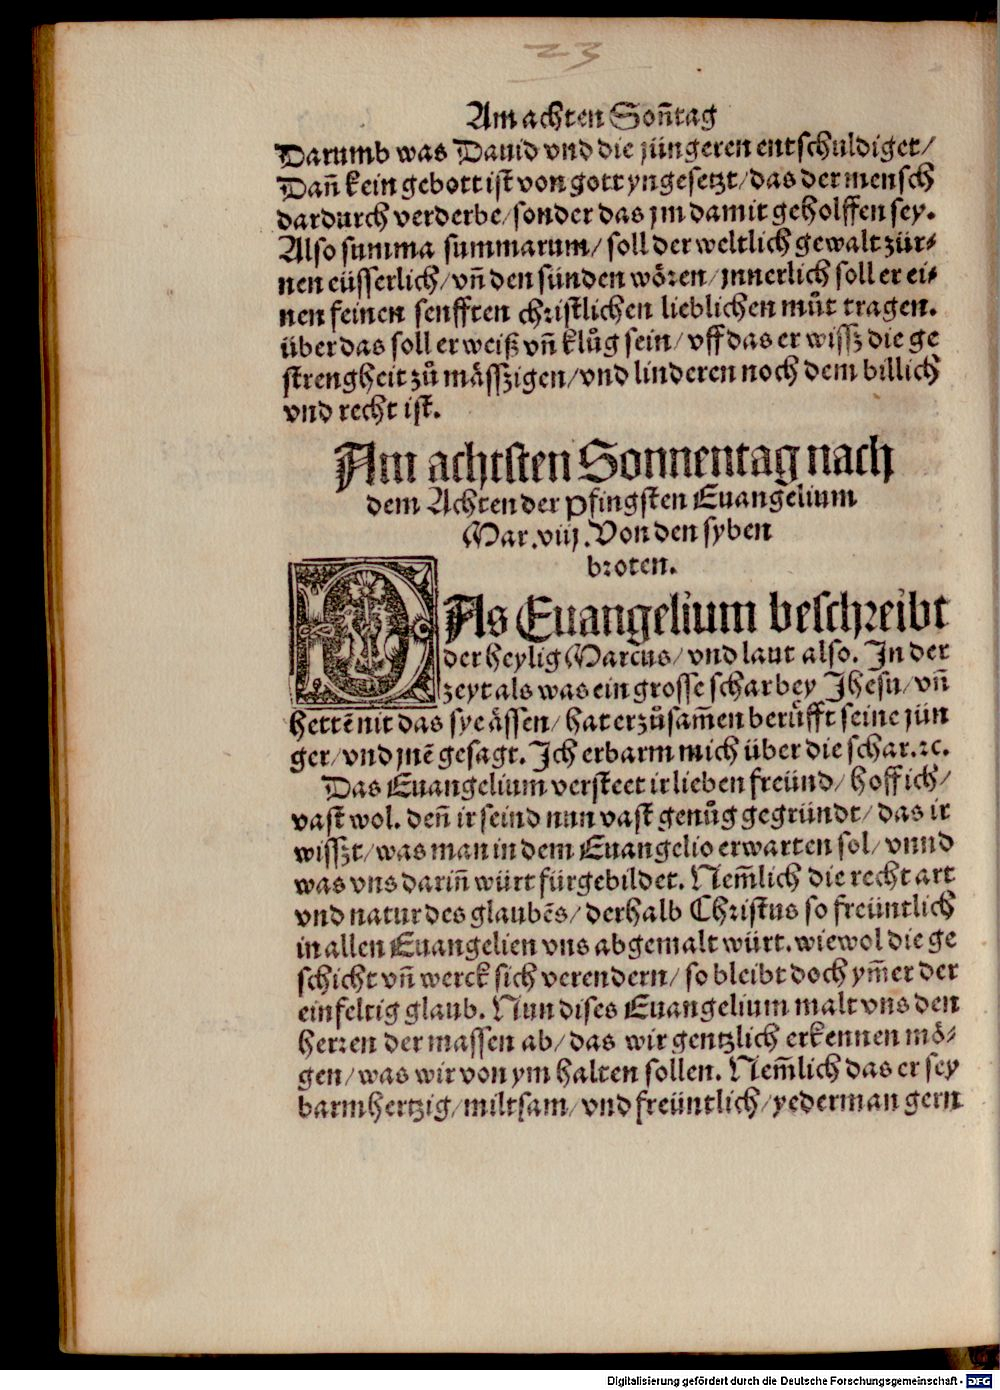 23
Am achten Soñtag
Darumb was Dauid vnd die jüngeren entschuldiget/
Dañ kein gebott ist von gott yngesetzt/das der mensch
dardurch verderbe/sonder das jm damit geholffen sey.
Also summa summarum/ soll der weltlich gewalt zür-
nen eüsserlich/vñ den sünden wören/jnnerlich soll er ei-
nen feinen senfften christlichen lieblichen můt tragen.
über das soll er weiß vñ klůg sein/vff das er wissz die ge
strengheit zů mässzigen/vnd linderen noch dem billich
vnd recht ist.
Am achtsten Sonnentag nach
dem Achten der Pfingsten Euangelium
Mar.viij.Von den syben
broten.
DAs Euangelium beschreibt
der heylig Marcus/vnd laut also. In der
zeyt als was ein grosse schar bey Jhesu/vñ
hettē nit das sye ässen/hat er zůsam̃en berüfft seine jün
ger/vnd jnē gesagt. Ich erbarm mich über die schar.ꝛc.
Das Euangelium versteet ir lieben freünd/ hoff ich/
vast wol. deñ ir seind nun vast genůg gegründt/das ir
wisszt/was man in dem Euangelio erwarten sol/vnnd
was vns dariñ würt fürgebildet. Nem̃lich die recht art
vnd natur des glaubēs/derhalb Christus so freüntlich
in allen Euangelien vns abgemalt würt. wiewol die ge
schicht vñ werck sich verendern/so bleibt doch ym̃er der
einfeltig glaub. Nun dises Euangelium malt vns den
herren der massen ab/das wir gentzlich erkennen mö-
gen/was wir von ym halten sollen. Nem̃lich das er sey
barmhertzig/miltsam/vnd freüntlich/yederman gern
Digitalisierung gefördert durch die Deutsche Forschungsgemeinschaft - DFG